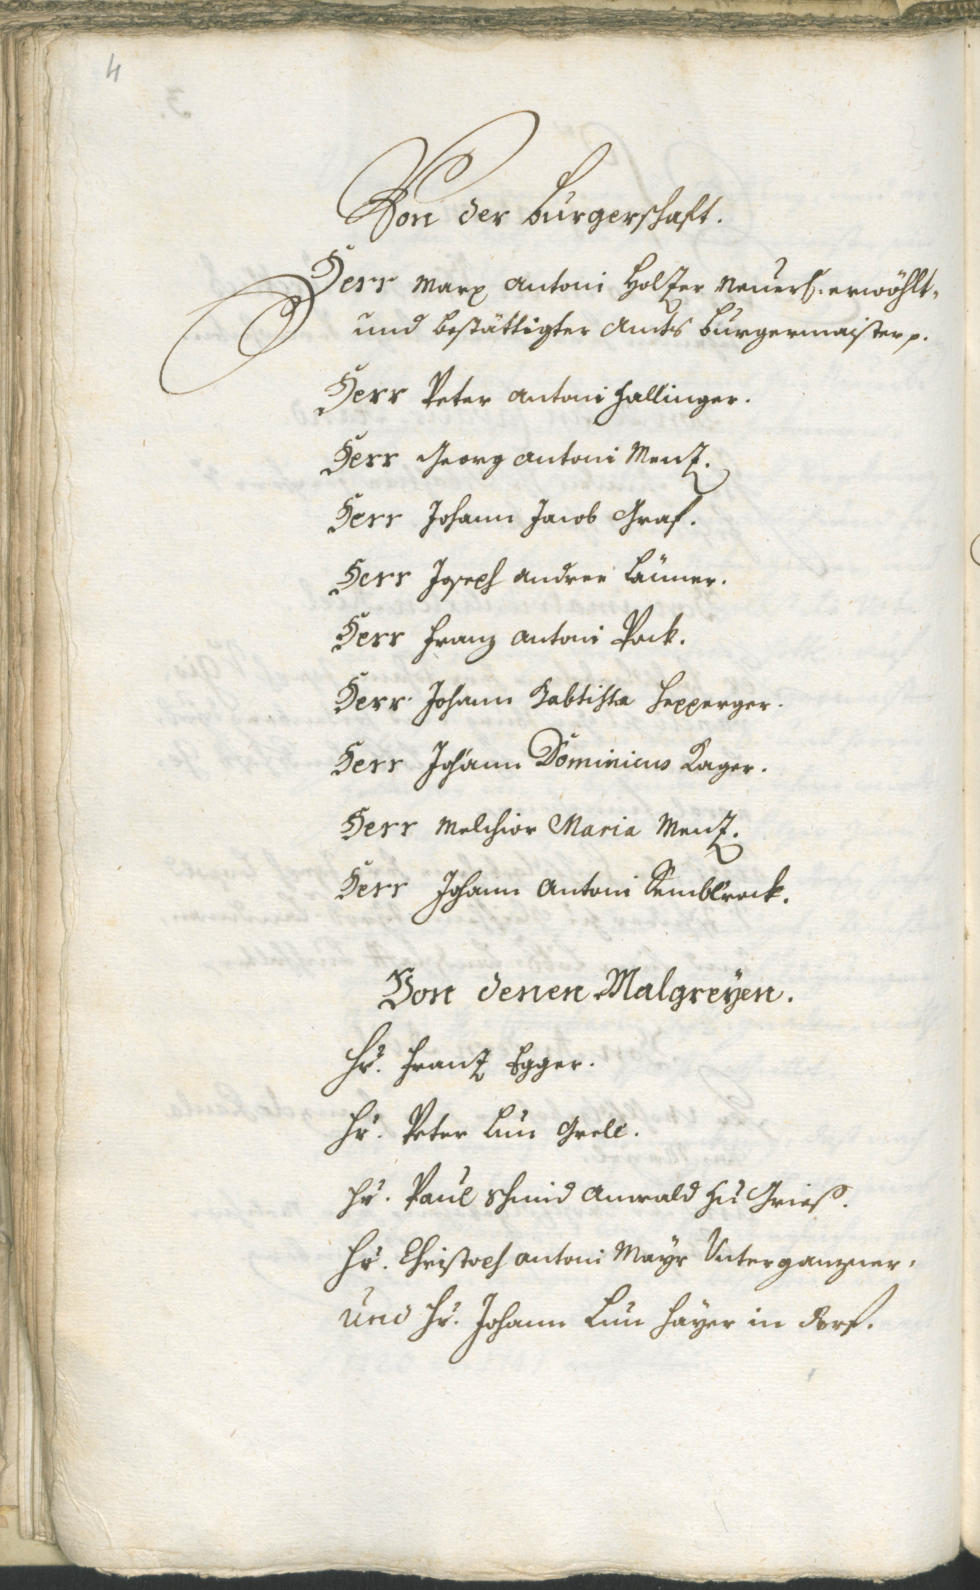 4
Von der Burgerschafft.
Herr Marx Antoni Holzer Neuerl. erwöhlt-
und bestättigter Ambts Burgermaister p.
Herr Peter Antoni Hallinger.
Herr Georg Antoni Menz.
Herr Johann Jacob Graf.
Herr Joseph Andree Laimer.
Herr Franz Antoni Pock.
Herr Johann Babtista Hepperger.
Herr Johann Dominicus Kager.
Herr Melchior Maria Menz.
Herr Johann Antoni Semblrock.
Von denen Malgreÿen.
Hr. Frantz Egger.
Hr. Peter Lun Grell.
Hr. Paul Schmid Anwald zu Grieß.
Hr. Christoph Antoni Mayr Unterganzner.
und Hr. Johann Lun Haÿer in Dorf.